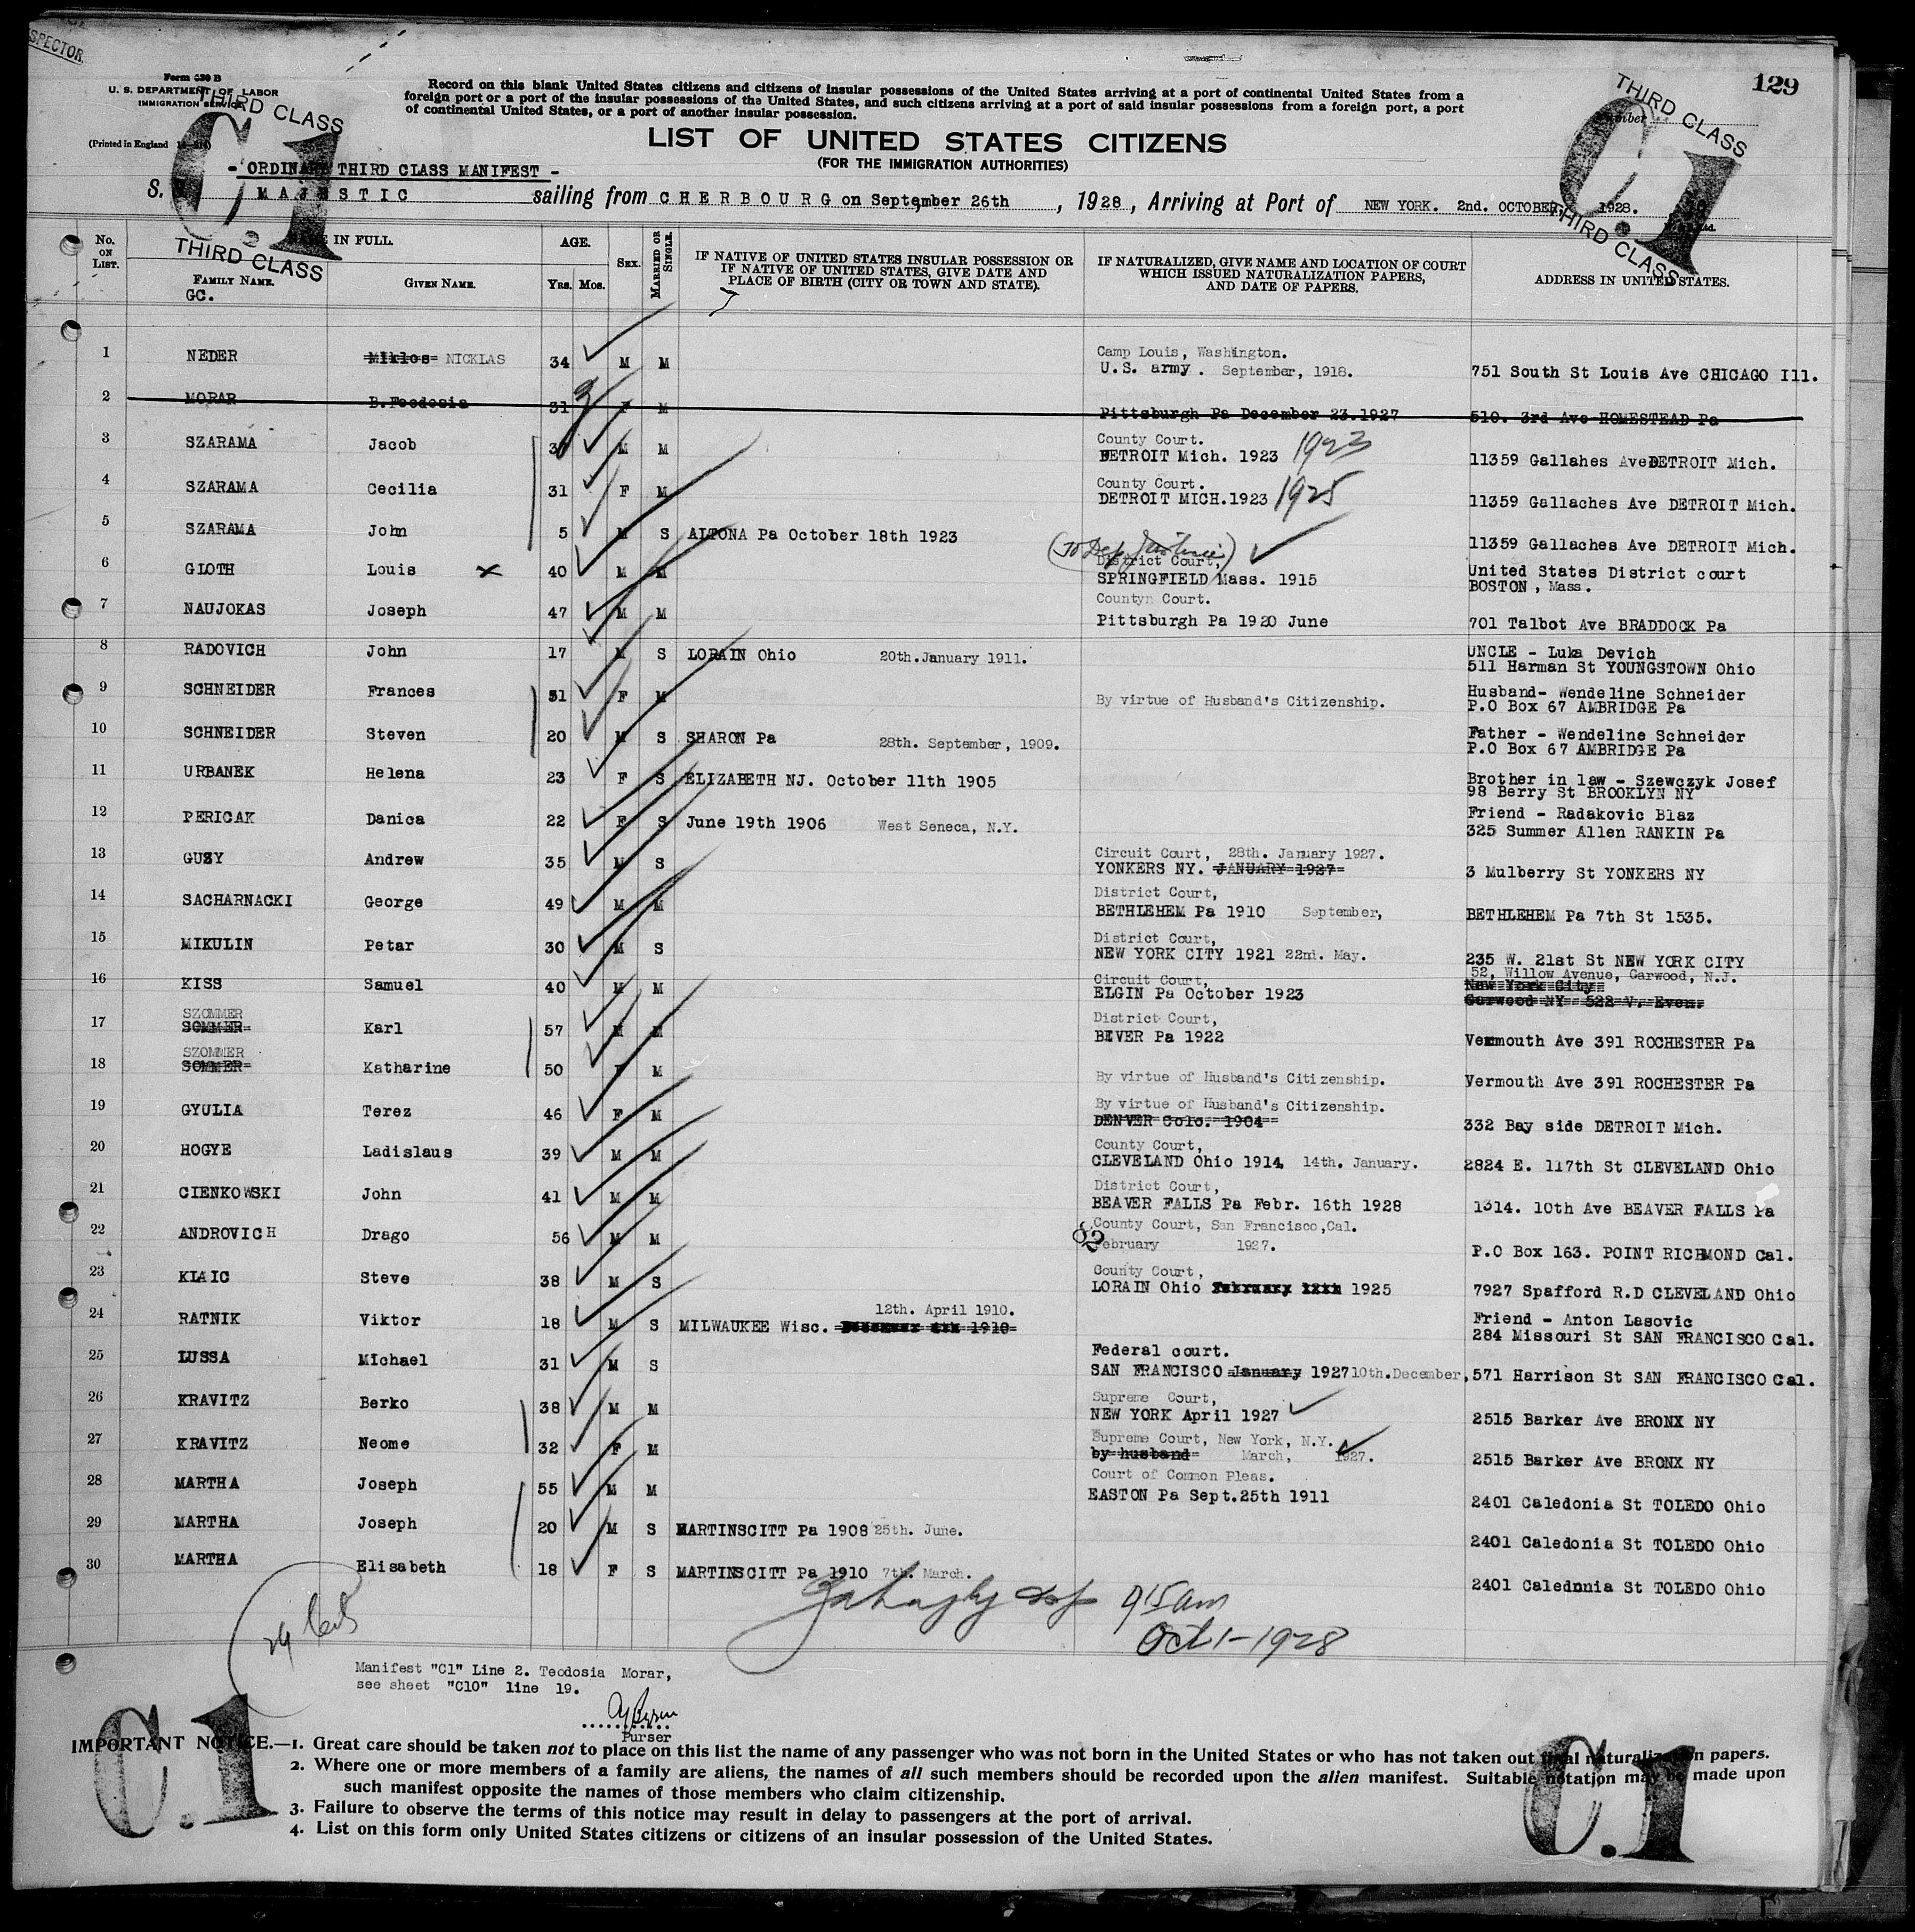 SPECTOR
129
Form 630 B
U. S. DEPARTMENT OF LABOR
IMMIGRATION SERVICE
(Printed in England
THIRD CLASS
C.1
THIRD CLASS
THIRD CLASS
Number
C.1
THIRD CLASS
Record on this blank United States citizens and citizens of insular possessions of the United States arriving at a port of continental United States from a
foreign port or a port of the insular possessions of the United States, and such citizens arriving at a port of said insular possessions from a foreign port, a port
of continental United States, or a port of another insular possession.
LIST OF UNITED STATES CITIZENS
(FOR THE IMMIGRATION AUTHORITIES)
- ORDINARY THIRD CLASS MANIFEST -
S. MAJESTIC sailing from CHERBOURG on September 26th, 1928, Arriving at Port of NEW YORK. 2nd. OCTOBER, 1928.
No. ON LIST. NAME IN FULL. AGE. SEX. MARRIED OR SINGLE. IF NATIVE OF UNITED STATES INSULAR POSSESSION OR IF NATIVE OF UNITED STATES, GIVE DATE AND PLACE OF BIRTH (CITY OR TOWN AND STATE). IF NATURALIZED, GIVE NAME AND LOCATION OF COURT WHICH ISSUED NATURALIZATION PAPERS, AND DATE OF PAPERS. ADDRESS IN UNITED STATES.
FAMILY NAME. GIVEN NAME. YRS. MOS.
GC.
1 NEDER Miklos NICKLAS 34 M M Camp Louis, Washington. U.S. army. September, 1918. 751 South St Louis Ave CHICAGO Ill.
2 MORAR B.Feodosia 31 F M Pittsburgh Pa December 23.1927 510. 3rd Ave HOMESTEAD Pa
3 SZARAMA Jacob M M County Court. DETROIT Mich. 1923 1923 11359 Gallahes Ave DETROIT Mich.
4 SZARAMA Cecilia 31 F M County Court. DETROIT MICH.1923 1925 11359 Gallaches Ave DETROIT Mich.
5 SZARAMA John 5 M S ALTONA Pa October 18th 1923 11359 Gallaches Ave DETROIT Mich.
6 GLOTH Louis x 40 M M District Court, SPRINGFIELD Mass. 1915 United States District court BOSTON, Mass.
7 NAUJOKAS Joseph 47 M M Countyn Court. Pittsburgh Pa 1920 June 701 Talbot Ave BRADDOCK Pa
8 RADOVICH John 17 M S LORAIN Ohio 20th.January 1911. UNCLE - Luka Devich 511 Harman St YOUNGSTOWN Ohio
9 SCHNEIDER Frances 51 F M By virtue of Husband's Citizenship. Husband- Wendeline Schneider P.O Box 67 AMBRIDGE Pa
10 SCHNEIDER Steven 20 M S SHARON Pa 28th. September, 1909. Father - Wendeline Schneider P.O Box 67 AMBRIDGE Pa
11 URBANEK Helena 23 F S ELIZABETH NJ. October 11th 1905 Brother in law - Szewczyk Josef 98 Berry St BROOKLYN NY
12 PERICAK Danica 22 F S June 19th 1906 West Seneca, N.Y. Friend - Radakovic Blaz 325 Summer Allen RANKIN Pa
13 GUZY Andrew 35 M S Circuit Court, 28th. January 1927. YONKERS NY. JANUARY 1927 3 Mulberry St YONKERS NY
14 SACHARNACKI George 49 M M District Court, BETHLEHEM Pa 1910 September, BETHLEHEM Pa 7th St 1535.
15 MIKULIN Petar 30 M S District Court, NEW YORK CITY 1921 22nd. May. 235 W. 21st St NEW YORK CITY
16 KISS Samuel 40 M M Circuit Court, ELGIN Pa October 1923 52, Willow Avenue, Garwood, N.J. New York City Garwood NY 522 V. Even.
17 SZOMMER SOMMER Karl 57 M M District Court, BEVER Pa 1922 Vermouth Ave 391 ROCHESTER Pa
18 SZOMMER SOMMER Katharine 50 F M By virtue of Husband's Citizenship. Vermouth Ave 391 ROCHESTER Pa
19 GYULIA Terez 46 F M By virtue of Husband's Citizenship. DENVER Colo. 1904 332 Bay side DETROIT Mich.
20 HOGYE Ladislaus 39 M M County Court, CLEVELAND Ohio 1914 14th. January. 2824 E. 117th St CLEVELAND Ohio
21 CIENKOWSKI John 41 M M District Court, BEAVER FALLS Pa Febr. 16th 1928 1314. 10th Ave BEAVER FALLS Pa
22 ANDROVICH Drago 56 M M County Court, San Francisco,Cal. February 1927. P.O Box 163. POINT RICHMOND Cal.
23 KLAIC Steve 38 M S County Court, LORAIN Ohio February 12th 1925 7927 Spafford R.D CLEVELAND Ohio
24 RATNIK Viktor 18 M S MILWAUKEE Wisc. 12th. April 1910. Friend - Anton Lasovic 284 Missouri St SAN FRANCISCO Cal.
25 LUSSA Michael 31 M S Federal court. SAN FRANCISCO January 1927 10th.December, 571 Harrison St SAN FRANCISCO Cal.
26 KRAVITZ Berko 38 M M Supreme Court, NEW YORK April 1927 2515 Barker Ave BRONX NY
27 KRAVITZ Neome 32 F M Supreme Court, New York, N.Y. by husband March, 1927. 2515 Barker Ave BRONX NY
28 MARTHA Joseph 55 M M Court of Common Pleas. EASTON Pa Sept.25th 1911 2401 Caledonia St TOLEDO Ohio
29 MARTHA Joseph 20 M S MARTINSCITT Pa 1908 25th. June. 2401 Caledonia St TOLEDO Ohio
30 MARTHA Elisabeth 18 F S MARTINSCITT Pa 1910 7th. March. 2401 Calednnia St TOLEDO Ohio
915am
Oct 1-1928
Manifest "C1" Line 2. Teodosia Morar,
see sheet "C10" line 19.
Purser
IMPORTANT NOTICE.—1. Great care should be taken not to place on this list the name of any passenger who was not born in the United States or who has not taken out final naturalization papers.
2. Where one or more members of a family are aliens, the names of all such members should be recorded upon the alien manifest. Suitable notation may be made upon
such manifest opposite the names of those members who claim citizenship.
3. Failure to observe the terms of this notice may result in delay to passengers at the port of arrival.
4. List on this form only United States citizens or citizens of an insular possession of the United States.
C.1
C.1